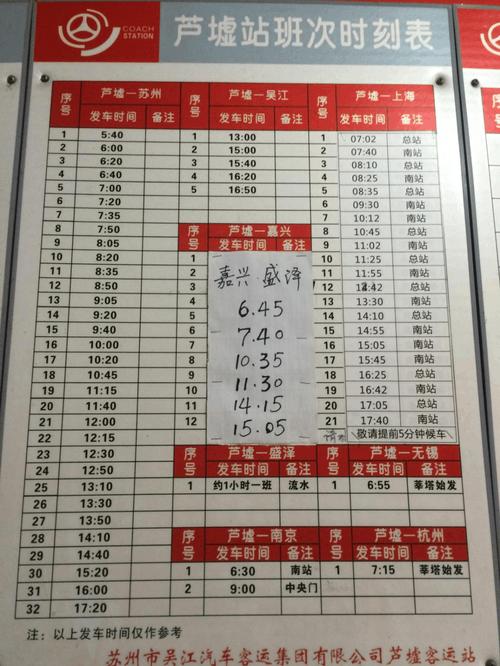 COACH STATION
芦墟站班次时刻表
序号 芦墟—苏州
发车时间 备注
1 5:40
2 6:00
3 6:20
4 6:40
5 7:00
6 7:20
7 7:35
8 7:50
9 8:05
10 8:20
11 8:35
12 8:50
13 9:05
14 9:20
15 9:40
16 10:00
17 10:20
18 10:45
19 11:15
20 11:40
21 12:00
22 12:15
23 12:30
24 12:50
25 13:10
26 13:30
27 13:50
28 14:10
29 14:40
30 15:20
31 16:00
32 17:20
序号 芦墟—吴江
发车时间 备注
1 13:00
2 15:00
3 15:40
4 16:20
5 16:50
序号 芦墟—嘉兴
发车时间 备注
1
2
3
4
5
6
7
8
9
10
11
12
嘉兴 盛泽
6.45
7.40
10.35
11.30
14.15
15.05
序号 芦墟—上海
发车时间 备注
1 07:02 总站
2 07:40 南站
3 08:10 总站
4 08:25 南站
5 08:35 总站
6 09:30 南站
7 10:12 南站
8 10:45 总站
9 11:02 南站
10 11:25 总站
11 11:55 南站
12 12:42 总站
13 13:30 南站
14 14:10 总站
15 14:55 南站
16 15:05 总站
17 15:45 南站
18 16:25 总站
19 16:42 南站
20 17:05 总站
21 17:40 南站
敬请提前5分钟候车
序号 芦墟—盛泽
发车时间 备注
1 约1小时一班 流水
序号 芦墟—无锡
发车时间 备注
1 6:55 莘塔始发
序号 芦墟—南京
发车时间 备注
1 6:30 南站
2 9:00 中央门
序号 芦墟—杭州
发车时间 备注
1 7:15 莘塔始发
注：以上发车时间仅作参考
苏州市吴江汽车客运集团有限公司芦墟客运站